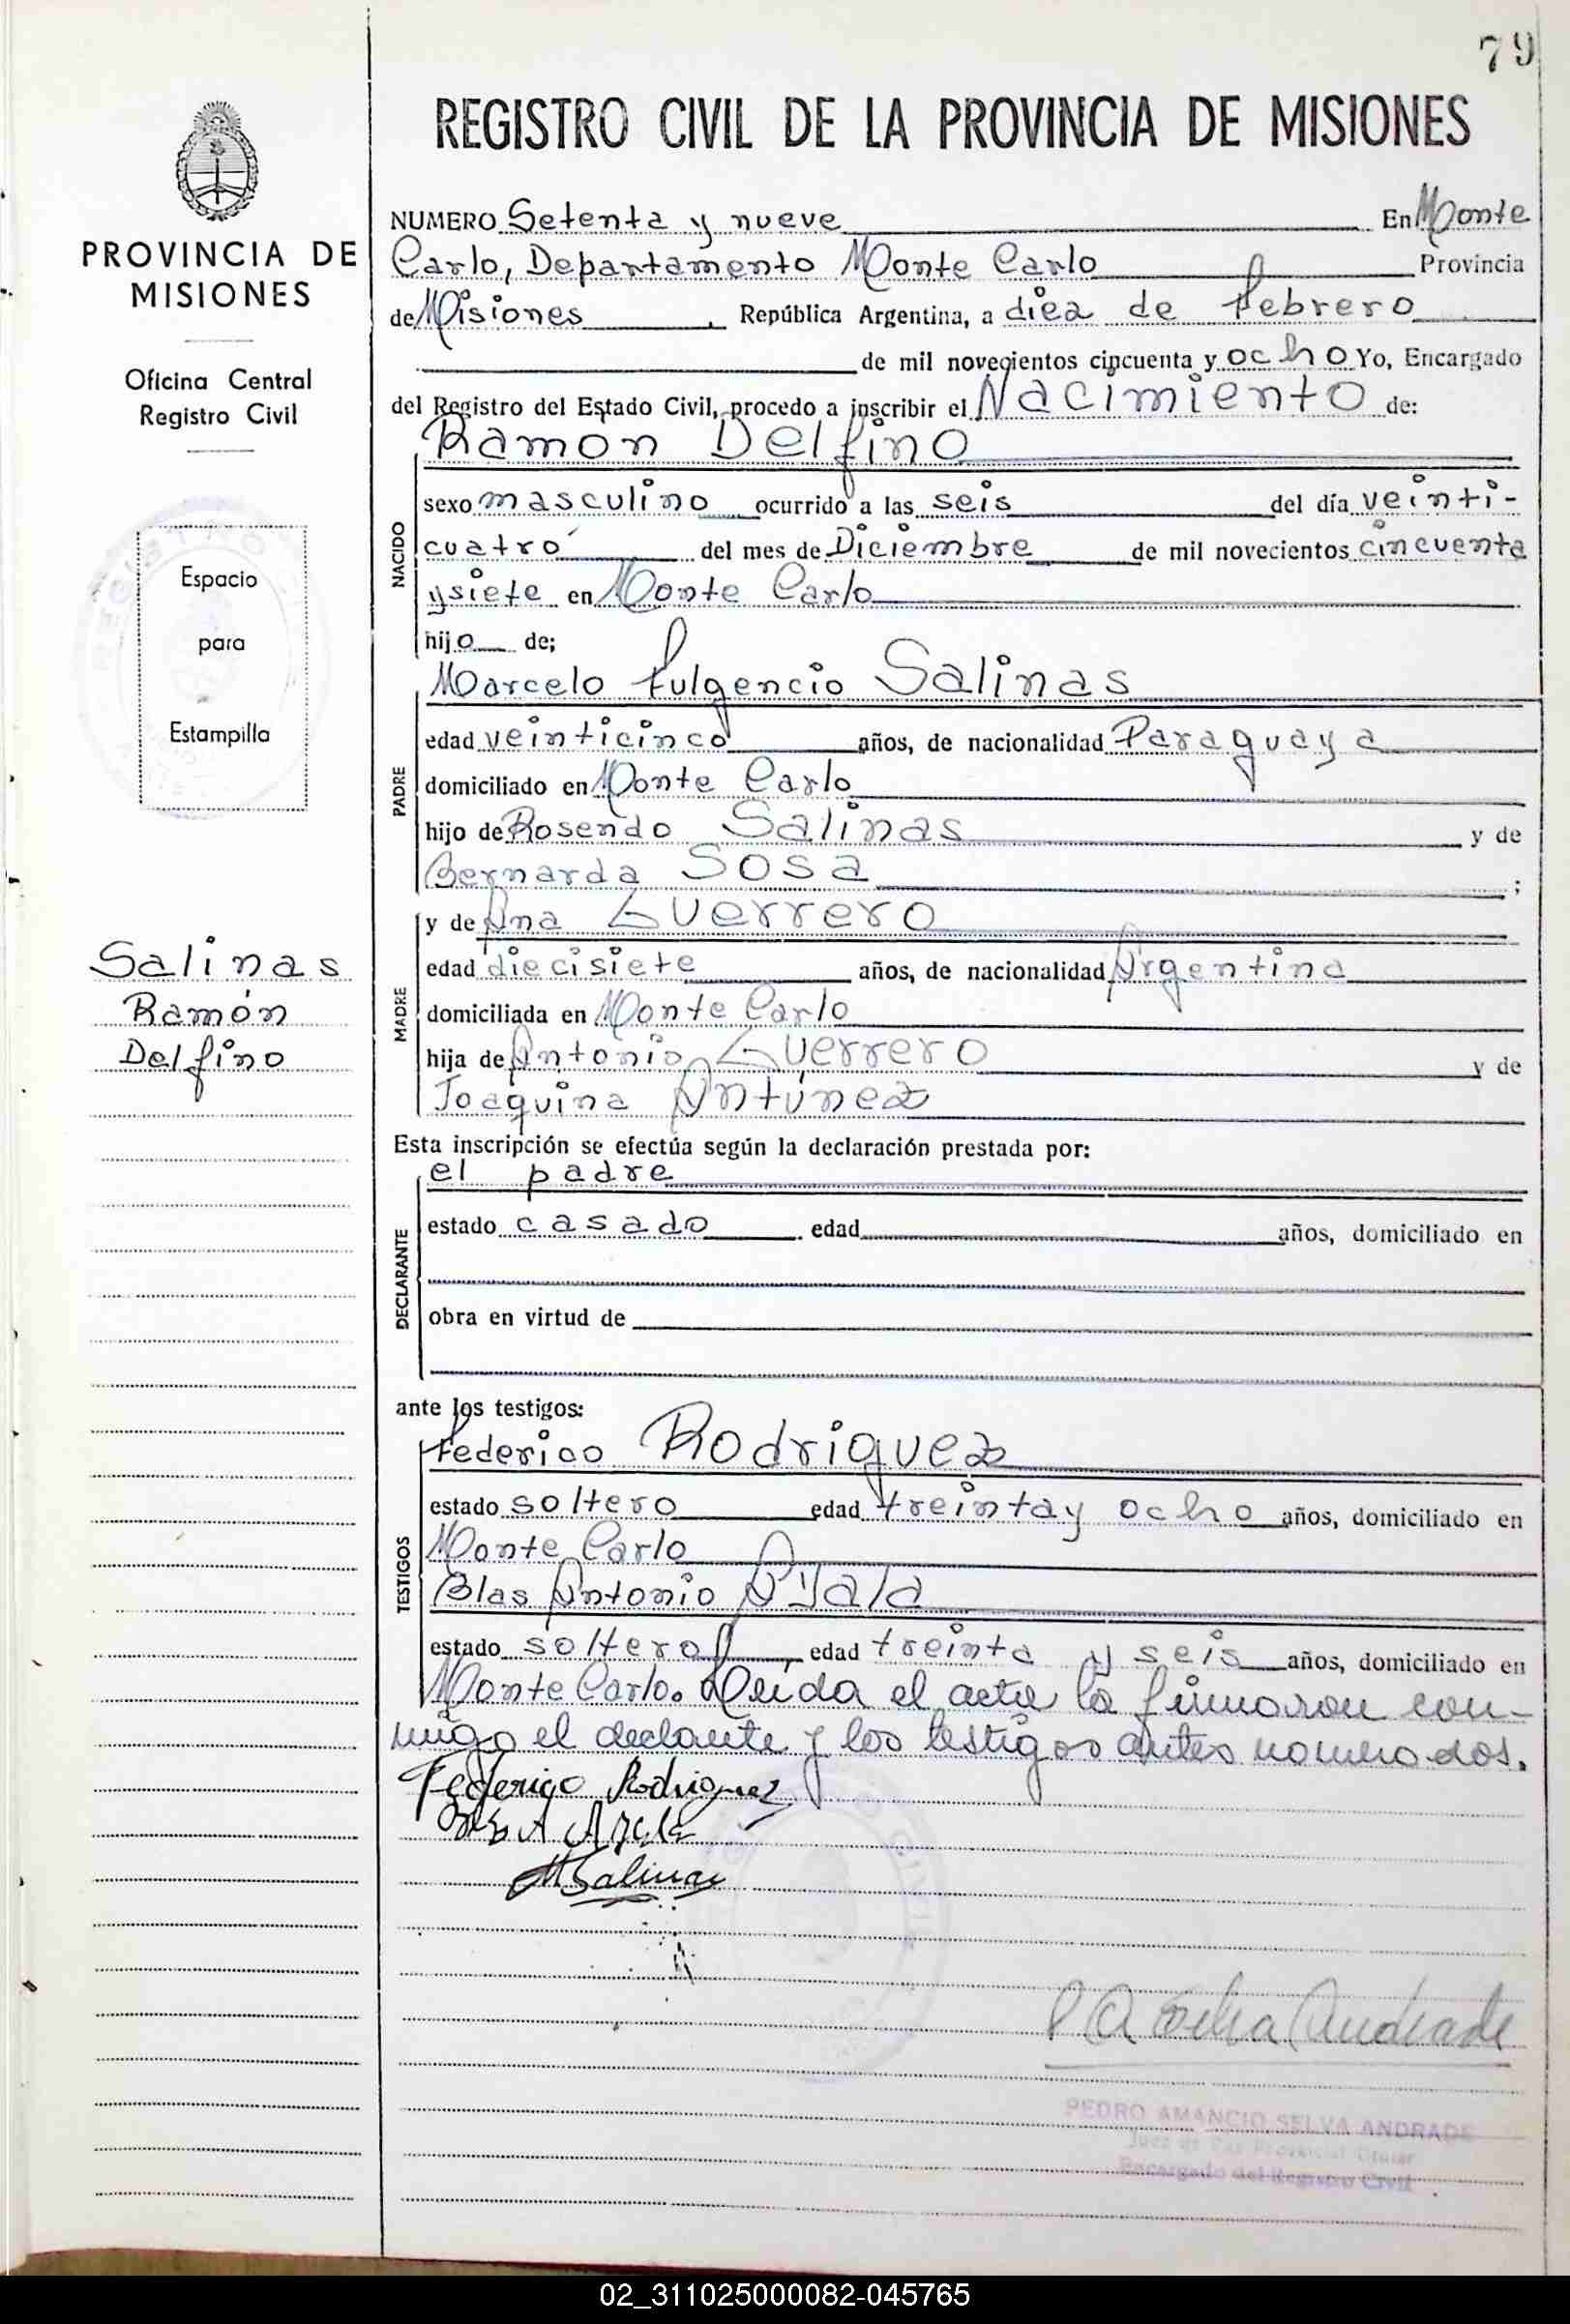 79
REGISTRO CIVIL DE LA PROVINCIA DE MISIONES
PROVINCIA DE
MISIONES
Oficina Central
Registro Civil
Espacio
para
Estampilla
Salinas
Ramón
Delfino
NUMERO Setenta y nueve En Monte
Carlo, Departamento Monte Carlo Provincia
de Misiones, República Argentina, a diez de Febrero
de mil novecientos cincuenta y ocho Yo, Encargado
del Registro del Estado Civil, procedo a inscribir el Nacimiento de:
Ramon Delfino
NACIDO
sexo masculino ocurrido a las seis del día veinti-
cuatro del mes de Diciembre de mil novecientos cincuenta
y siete en Monte Carlo
hijo de;
Marcelo Fulgencio Salinas
PADRE
edad veinticinco años, de nacionalidad Paraguaya
domiciliado en Monte Carlo
hijo de Rosendo Salinas y de
Bernarda Sosa ;
MADRE
y de Ana Guerrero
edad diecisiete años, de nacionalidad Argentina
domiciliada en Monte Carlo
hija de Antonio Guerrero y de
Joaquina Antúnez
Esta inscripción se efectúa según la declaración prestada por:
el padre
DECLARANTE
estado casado edad años, domiciliado en
obra en virtud de
ante los testigos:
Federico Rodriguez
TESTIGOS
estado soltero edad treinta y ocho años, domiciliado en
Monte Carlo
Blas Antonio Ayala
estado soltero, edad treinta y seis años, domiciliado en
Monte Carlo. Leída el acta la firmaron con-
migo el declante y los testigos antes nomrados.
Federico Rodriguez
M Salinas
P A Selva Andrade
PEDRO AMANCIO SELVA ANDRADE
Juez de Paz Provincial Titular
Encargado del Registro Civil
02_311025000082-045765